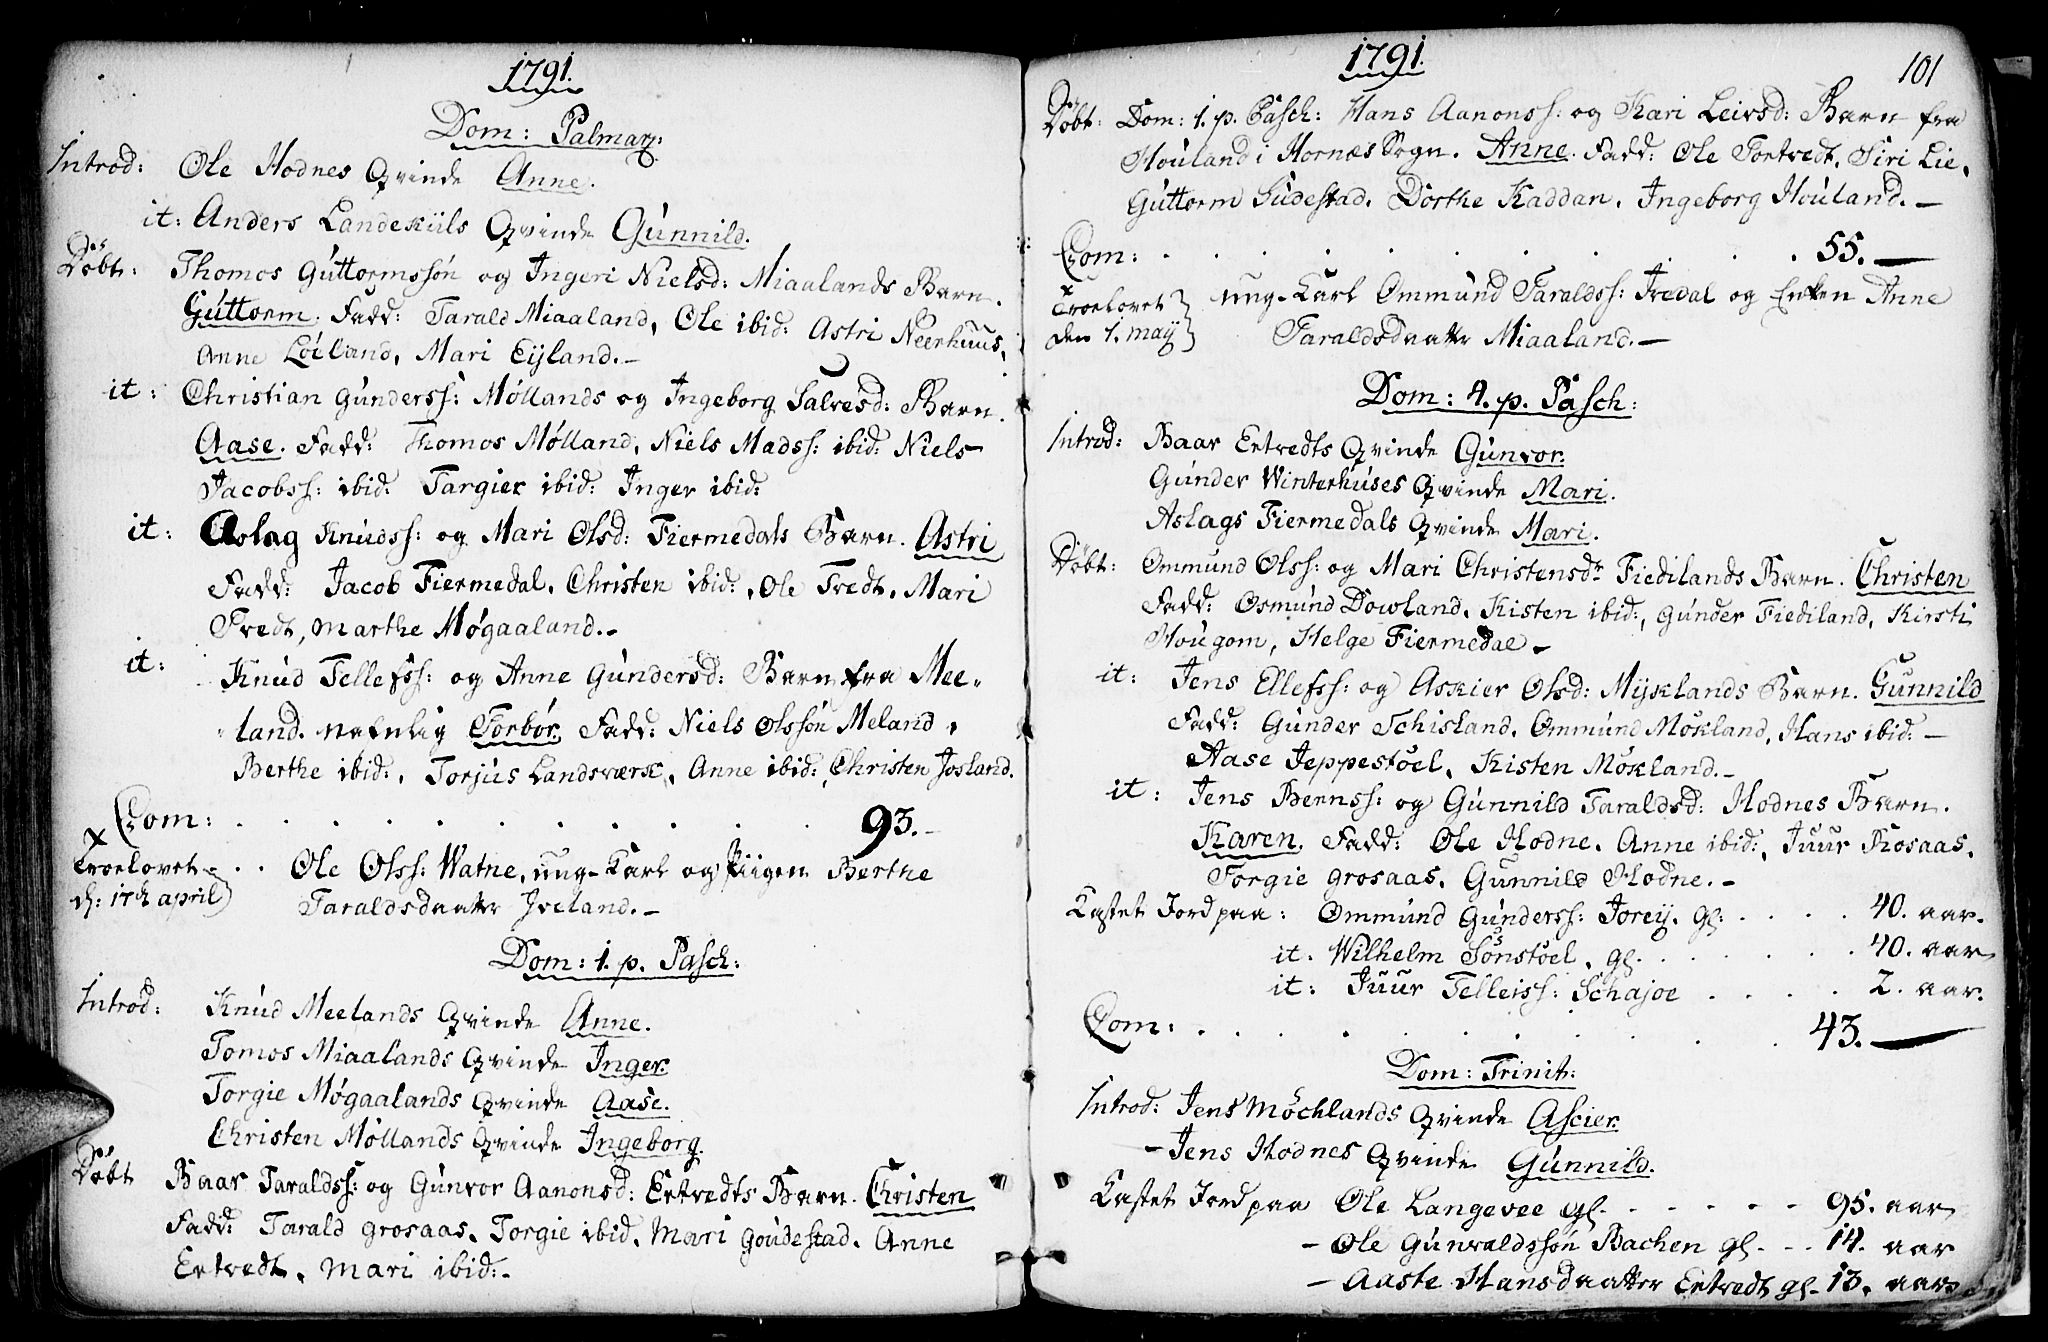 1791.
Dom: Palmar:
Introd: Ole Hodnes Qvinde Anne.
it: Anders Landekiils Qvinde Gunnild.
Döbt: Thomos Guttormssön og Ingeri Nielsd: Miaalands Barn.
Guttorm. Fadd: Tarald Miaaland, Ole ibid: Astri Neerhuus,
Anne Löiland, Mari Eijland.-
it: Christian Gunderss: Møllands og Ingeborg Salvesd: Barn.
Aase. Fadd: Thomos Mølland, Niels Madss: ibid: Niels
Jacobss: ibid: Targier ibid: Inger ibid:
it: Aslag Knudss: og Mari Olsd: Fiermedals Barn. Astri
Fadd: Jacob Fiermedal, Christen ibid:, Ole Tredt, Mari
Tredt, Marthe Møgaaland.-
it: Knud Tellefss: og Anne Gundersd: Barn fra Mee-
land. nafnlig Torbor. Fadd: Niels Olssön Meland,
Berthe ibid:, Torjus Landsværk, Anne ibid:, Christen Josland.
Com: . . . . . . . . . 93.-
x
Troelovet - . . Ole Olss: Watne, ung-Karl og Piigen Berthe
d: 17de april) Taraldsdaatter Iveland.-
Dom: 1. p. Pasch:
Introd: Knud Meelands Qvinde Anne.
Tomos Miaalands Qvinde Inger.
Torgie Møgaalands Qvinde Aase.
Christen Møllands Qvinde Ingeborg.
Döbt Baar Taraldss: og Gunvor Aanonsd: Ertredts Barn. Christen
Fadd: Tarald Grosaas, Torgie ibid, Mari Goudestad, Anne
Ertredt, Mari ibid:-
1791.
101
Döbt: Dom: 1. p. Pasch: Hans Aanonss: og Kari Leirsd: Barn fra
Houland i Hornes Sogn. Anne. Fadd: Ole Tortredt, Siri Lie,
Guttorm Gudestad, Dorthe Kaddan, Ingeborg Houland.-
Com: . . . . . . . . . 55.-
x
Troelovet } ung-Karl Ommund Taraldss: Tredal og Enken Anne
den 1. maij } Taraldsdaatter Miaaland.-
Dom: 4. p. Pasch:
Introd: Baar Ertredts Qvinde Gunvor.
Gunder Winterhuses Qvinde Mari.
Aslags Fiermedals Qvinde Mari.
Döbt: Ommund Olss: og Mari Christensdr Fiedilands Barn. Christen
Fadd: Osmund Dowland, Kisten ibid:, Gunder Fiediland, Kirsti
Hougom, Helge Fiermedal -
it: Jens Ellefss: og Askier Olsd: Mijklands Barn. Gunnild
Fadd: Gunder Schisland, Ommund Mökland, Hans ibid:-
Aase Jeppestöel, Kisten Mökland.-
it: Jens Bernss: og Gunnild Taraldsd: Hodnes Barn.
Karen. Fadd: Ole Hodne, Anne ibid:, Juur Kosaas,
Torgie Grosaas, Gunnild Hodne.-
Kastet Jord paa: Ommund Gunderss: Jorey, gl: . . . . 40. aar.
it: Wilhelm Sönstöel, gl. . . . . . . 40. aar
it: Juur Telleiss: Schajoe . . . . 2. aar.
Com: . . . . . . . . . 43.-
Dom: Trinit:
Introd: Jens Möchlands Qvinde Ascier.
- Jens Hodnes Qvinde Gunnild.
Kastet Jord paa Ole Langevee gl. - - - - - 95. aar
- Ole Gunvaldssön Bachen gl. - - 14. aar
- Aaste Hansdaatter Ertredt gl - 13. aar